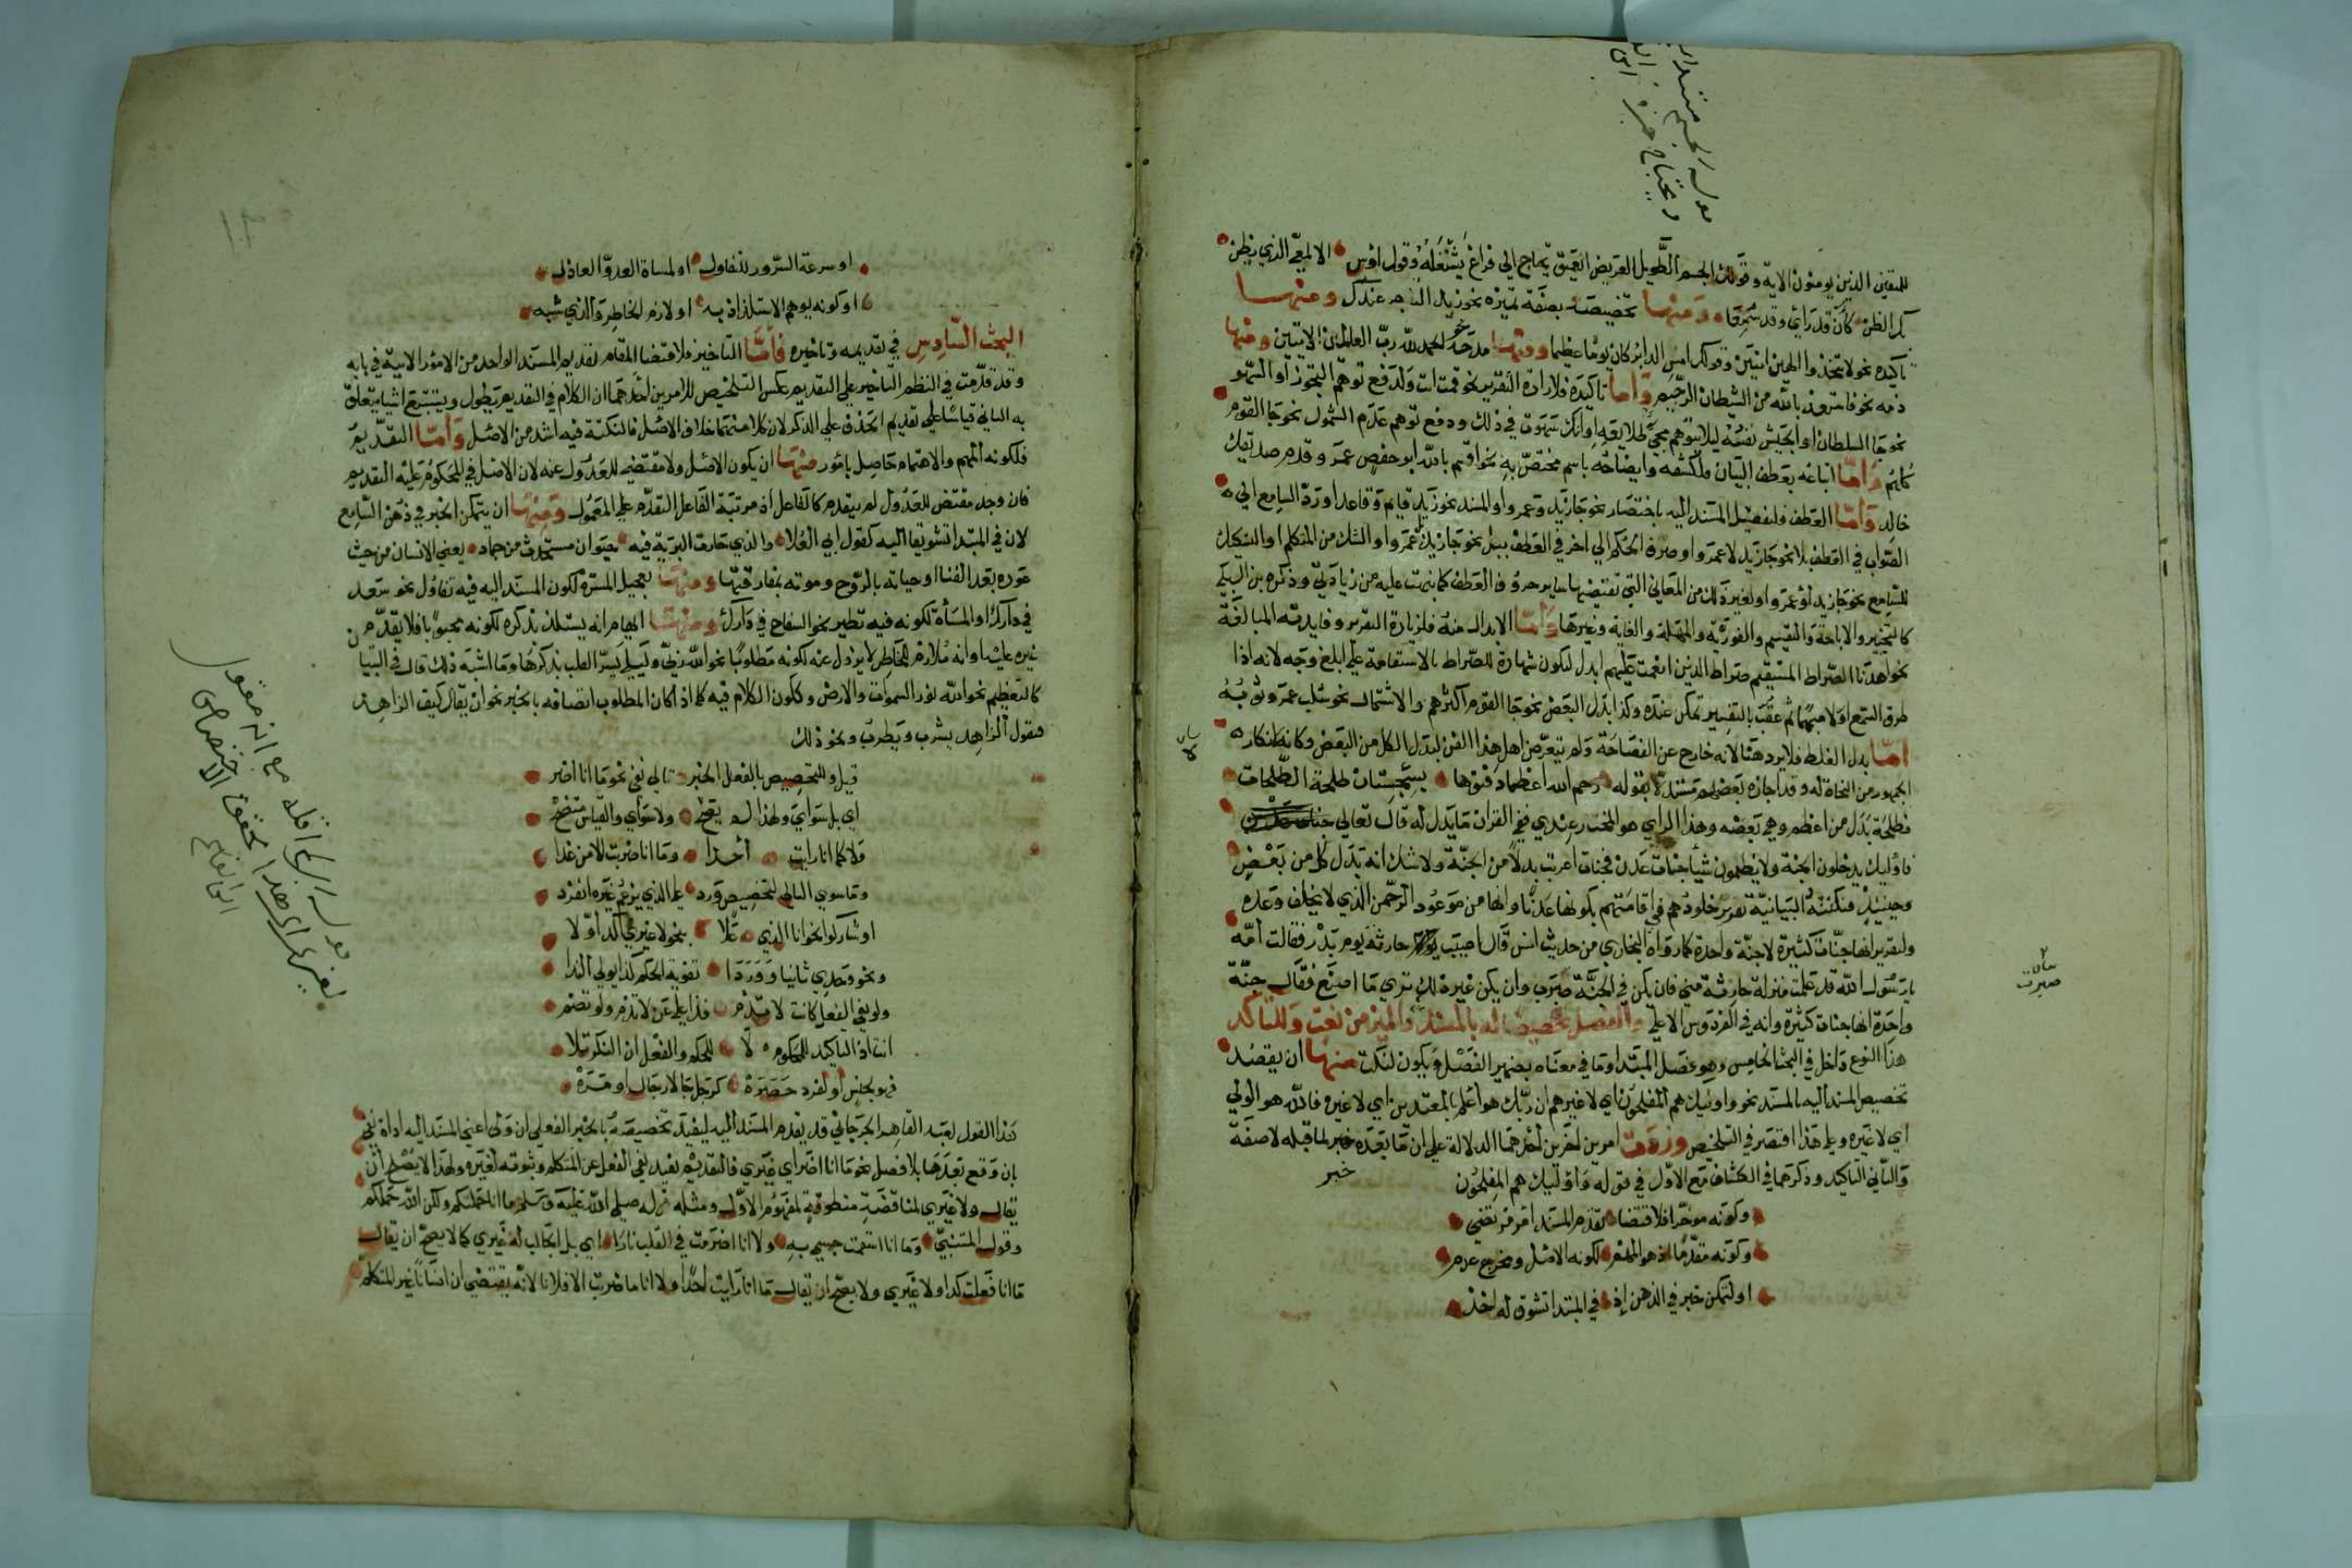 للمتقين الذين يومنون الاية وقولك الجسم الطويل العريض العميق يحتاج الي فراغ يشغله وقول اوس الالمعي الذي يظن
بك الظن كأن قد رأي وقد سمعا ومنها تخصيصه بصفة تميزه نحو زيد التاجر عندك ومنها
تاكيده نحو لا تتخذوا الهين اثنين وقولك امس الدابر كان يوما عظيما ومنها مدحه نحو الحمد لله رب العالمين الاثنين ومنها
ذمه نحو فاستعذ بالله من الشيطان الرجيم وأما تاكيده فلارادة التقرير نحو قمت انت ولدفع توهم التجوز أو السهو
نحو جا السلطان او الجيش نفسه ليلا يتوهم مجي طلايعه او انك سهوت في ذلك ودفع توهم عدم الشمول نحو جا القوم
كلهم وأما اتباعه بعطف البيان فلكشفه وايضاحه باسم مختص به نحو اقسم بالله أبو حفص عمر وقدم صديقك
خالد وأما العطف فلتفصيل المسند اليه باختصار نحو جا زيد وعمرو او المسند نحو زيد قايم وقاعد او رد السامع الي
الصواب في العطف بلا نحو جا زيد لا عمرو او صرف الحكم الي اخر في العطف ببل نحو جا زيد بل عمرو او الشك من المتكلم او التشكيك
للسامع نحو جا زيد أو عمرو او لغير ذلك من المعاني التي تقتضيها ساير حروف العطف كما نبهت عليه من زيادتي وذكره بن السبكي
كالتخيير والاباحة والتقسيم والفورية والمهلة والغاية وغيرها وأما الابدال منه فلزيادة التقرير وفايدته المبالغة
نحو اهدنا الصراط المستقيم صراط الذين انعمت عليهم ابدل ليكون شهادة للصراط بالاستقامة علي ابلغ وجه لانه اذا
طرق السمع اولا مبهما ثم عقب بالتفسير تمكن عنده وكذا بدل البعض نحو جا القوم اكثرهم والاشتمال نحو سلب عمرو ثوبه
أما بدل الغلط فلا يرد هنا لانه خارج عن الفصاحة ولم يتعرض اهل هذا الفن لبدل الكل من البعض وكانه لانكار
الجمهور من النحاة له وقد اجازه بعضهم مستدلا بقوله رحم الله اعظما دفنوها بسجستان طلحة الطلحات
فطلحة بدل من اعظم وهي بعضه وهذا الراي هو المختار عندي ففي القران ما يدل له قال تعالي
فاوليك يدخلون الجنة ولا يظلمون شيأ جنات عدن فجنات اعربت بدلا من الجنة ولا شك انه بدل كل من بعض
وحينيذ فنكتته البيانية تقرير خلودهم في اقامتهم بكونها عدنا وانها من موعود الرحمن الذي لا يخلف وعده
ولتقرير انها جنات كثيرة لا جنة واحدة كما رواه البخاري من حديث انس قال اصيب حارثة يوم بدر فقالت أمه
يا رسول الله قد علمت منزلة حارثة مني فان يكن في الجنة صبرت وان يكن غير ذلك تري ما اصنع فقال جنة
واحدة انها جنات كثيرة وانه في الفردوس الاعلي والفصل تخصيصا له بالمسند والميز من نعت وللتأكد
هذا النوع داخل في البحث الخامس وهو فصل المبتدا وما في معناه بضمير الفصل ويكون لنكت منها ان يقصد
تخصيص المسند اليه بالمسند نحو واوليك هم المفلحون اي لا غيرهم ان ربك هو أعلم بالمعتدين اي لا غيره فالله هو الولي
اي لا غيره وعلي هذا اقتصر في التلخيص وزدت امرين اخرين أحدهما الدلالة علي ان ما بعده خبر لما قبله لا صفة
والثاني التاكيد وذكرهما في الكشاف مع الاول في قوله وأوليك هم المفلحون
خبر
وكونه موخرا فلاقتضا تقدم المسند امر مرتضي
وكونه مقدما اذ هو المهم لكونه الاصل ومخرج عدم
او لتمكن خبر في الذهن إذ في المبتدا تشوق له اخذ
صبرت
او سرعة السرور للتفاول او لمساة العدو العاذل
او كونه يوهم الاستلذاذ به او لازم الخاطر والذي شبه
البحث السادس في تقديمه وتاخيره فأما التاخير فلاقتضا المقام تقديم المسند لواحد من الامور الاتية في بابه
وقد قدمت في النظم التاخير علي التقديم عكس التلخيص لامرين احدهما ان الكلام في التقديم يطول ويستتبع اشيا يتعلق
به الثاني قياسا علي تقديم الحذف علي الذكر لان كلا منهما خلاف الاصل فالنكتة فيه اشد من الاصل وأما التقديم
فلكونه المهم والاهتمام حاصل بامور منها ان يكون الاصل ولا مقتضي للعدول عنه لان الاصل في المحكوم عليه التقديم
فان وجد مقتض للعدول لم يتقدم كالفاعل اذ مرتبة الفاعل التقدم علي المعمول ومنها ان يتمكن الخبر في ذهن السامع
لان في المبتدا تشويقا اليه كقول ابي العلا والذي حارت البرية فيه حيوان مستحدث من جماد يعني الانسان من حيث
عوده بعد الفنا او حياته بالروح وموته بمفارقتها ومنها تعجيل المسرة لكون المسند اليه فيه تفاول نحو سعد
في دارك او المسأة لكونه فيه تطير نحو السفاح في دارك ومنها ايهام انه يستلذ بذكره لكونه محبوبا فلا يقدم
غيره عليه او انه ملازم للخاطر لا يزول عنه لكونه مطلوبا نحو الله ربي وليلي يسر القلب بذكرها وما اشبه ذلك قال في التبيان
كالتعظيم نحو الله نور السموات والارض وككون الكلام فيه كما اذا كان المطلوب اتصافه بالخبر نحو ان يقال كيف الزاهد
فتقول الزاهد يشرب ويطرب ونحو ذلك
قيل وللتخصيص بالفعل الخبر تالي نفي نحو ما انا اضر
اي بل سواي ولهذا لم يصح ولا سواي والقياس متضح
ولا كما انا رايت أحدا وما انا ضربت الا من عدا
وما سوي التالي لتخصيص ورد علي الذي يزعم غيره انفرد
او شاركوا نحو انا الذي علا بنحو لا غيري أكد أولا
ونحو وحدي ثانيا ووردا تقوية الحكم كذا يولي الندا
ولو نفي الفعل كانت لا تذم فذا علي عن لا تذم ولو تضم
انت اذ التاكيد للمحكوم لا للحكم والفعل ان النكر تلا
فهو بجنس أو لفرد حصره كرجل جا لا رجال او مره
هذا القول لعبد القاهر الجرجاني قد يقدم المسند اليه ليفيد تخصيصه بالخبر الفعلي ان ولي اعني المسند اليه اداة نفي
بان وقع بعدها بلا فصل نحو ما انا اضر اي غيري فالتقديم يفيد نفي الفعل عن المتكلم وثبوته لغيره ولهذا لا يصلح ان
يقال ولا غيري لمناقضة منطوقه لمفهوم الاول ومثله قوله صلي الله عليه وسلم ما انا حملتكم ولكن الله حملكم
وقول المتنبي وما انا اسقمت جسمي به ولا انا اضرمت في القلب نارا اي بل الجالب له غيري كما لا يصح ان يقال
ما انا فعلت كذا ولا غيري ولا يصح ان يقال ما انا رايت احدا ولا انا ما ضربت الا فلانا لانه يقتضي ان انسانا غير المتكلم